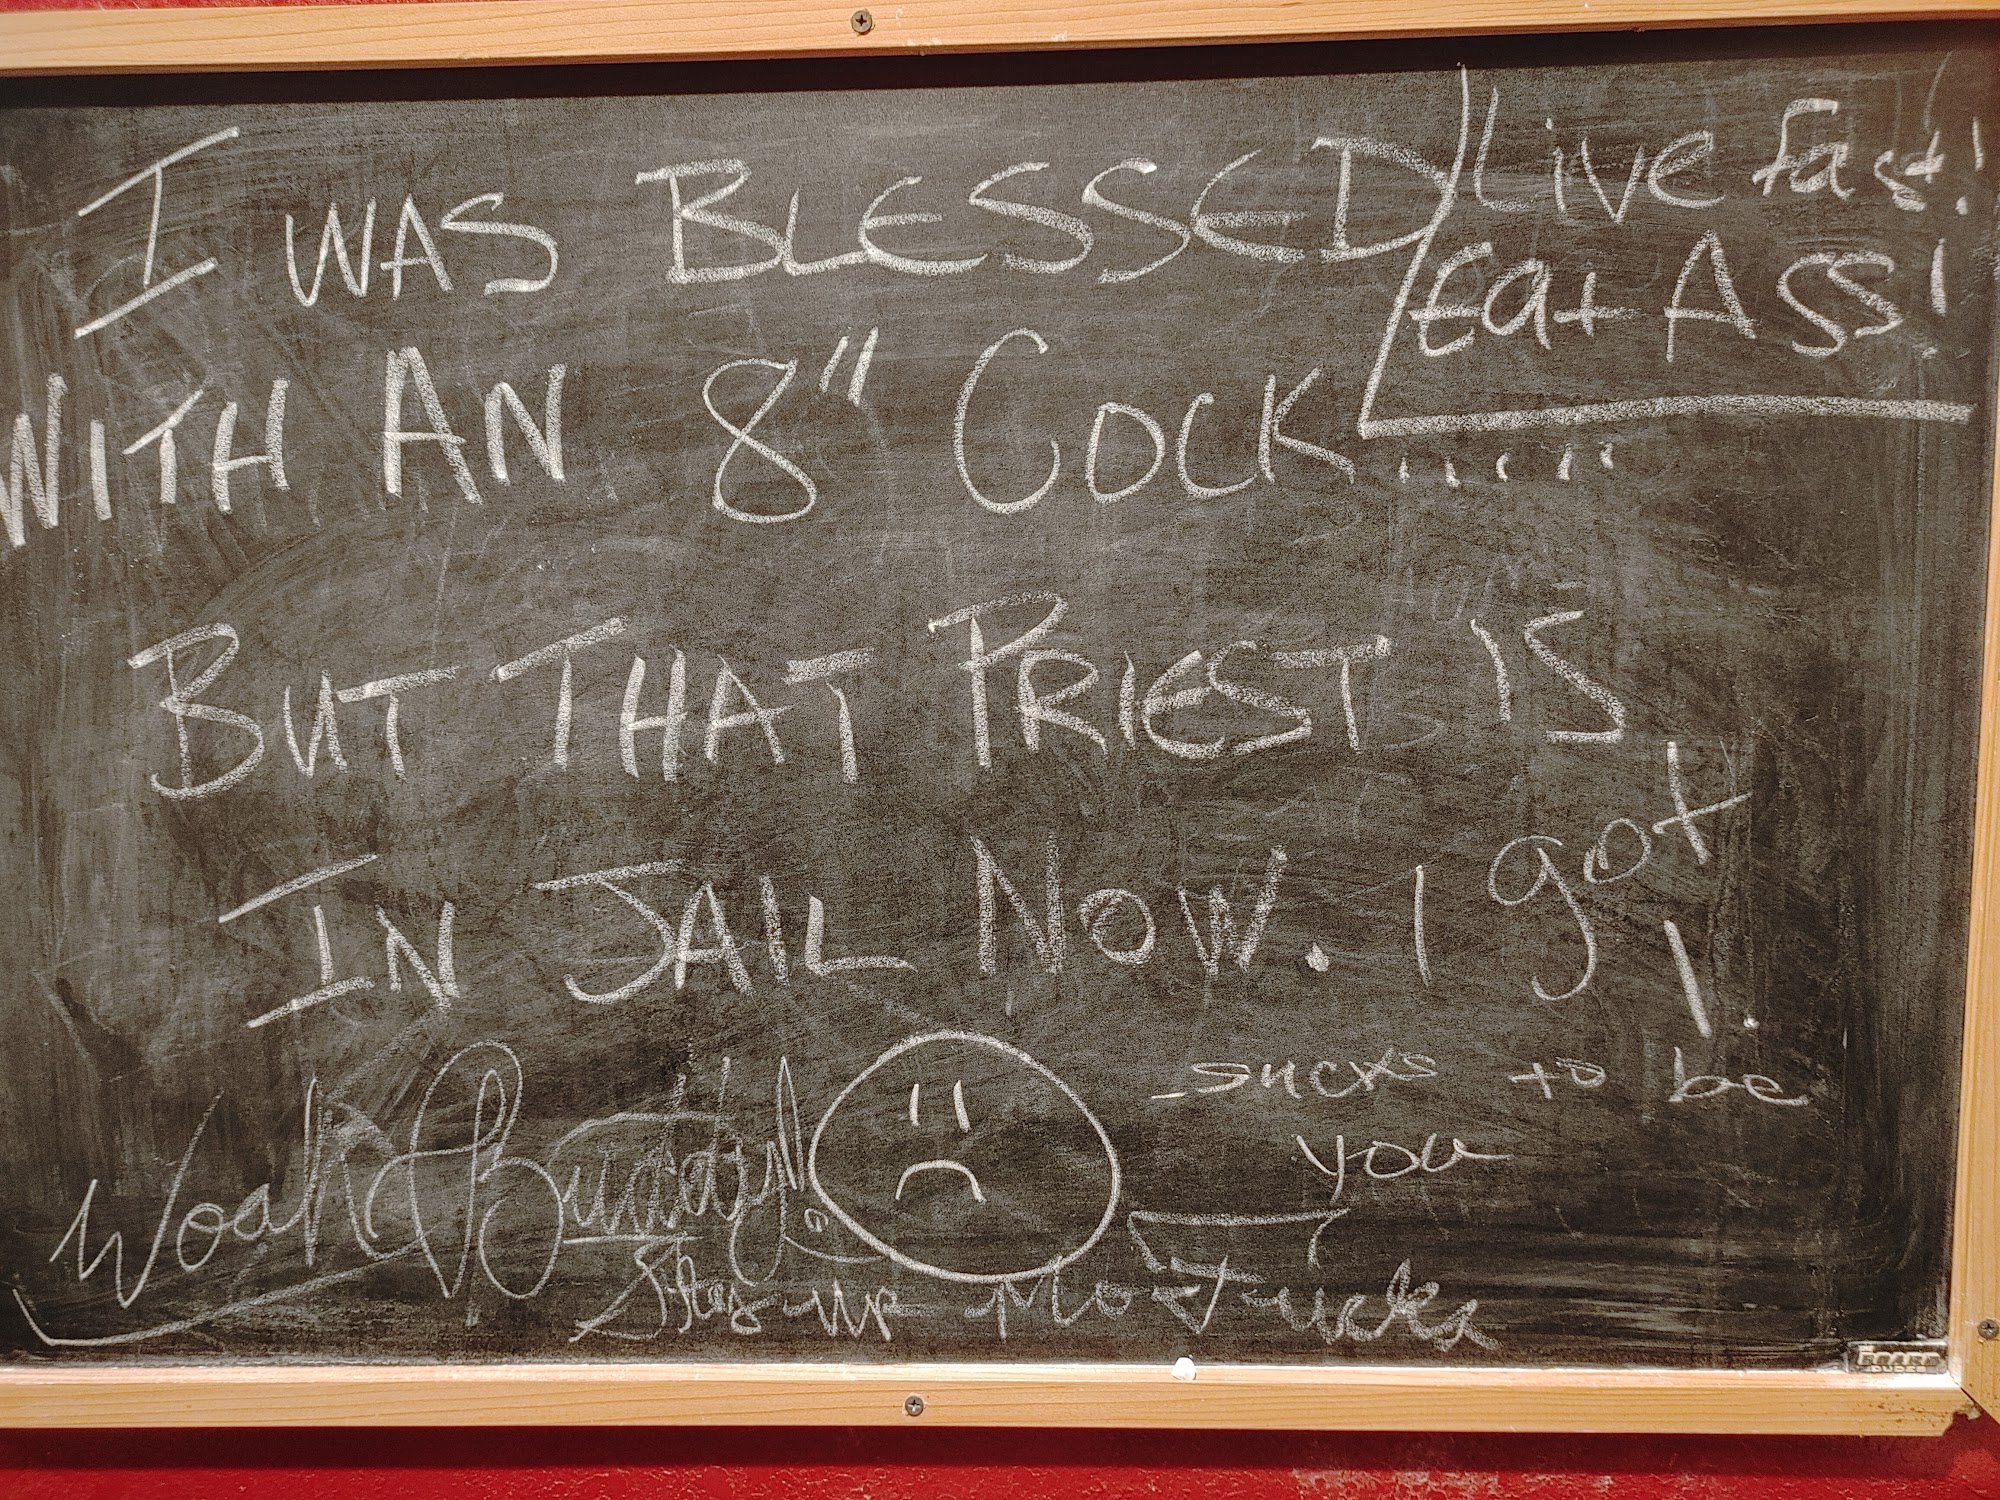 I WAS BLESSED
WITH AN 8" COCK.......
BUT THAT PRIEST IS
IN JAIL NOW.
Live fast!
Eat Ass!
I got
1.
Woah Buddy!
sucks to be
you
Stay up
BOARD
DUDES